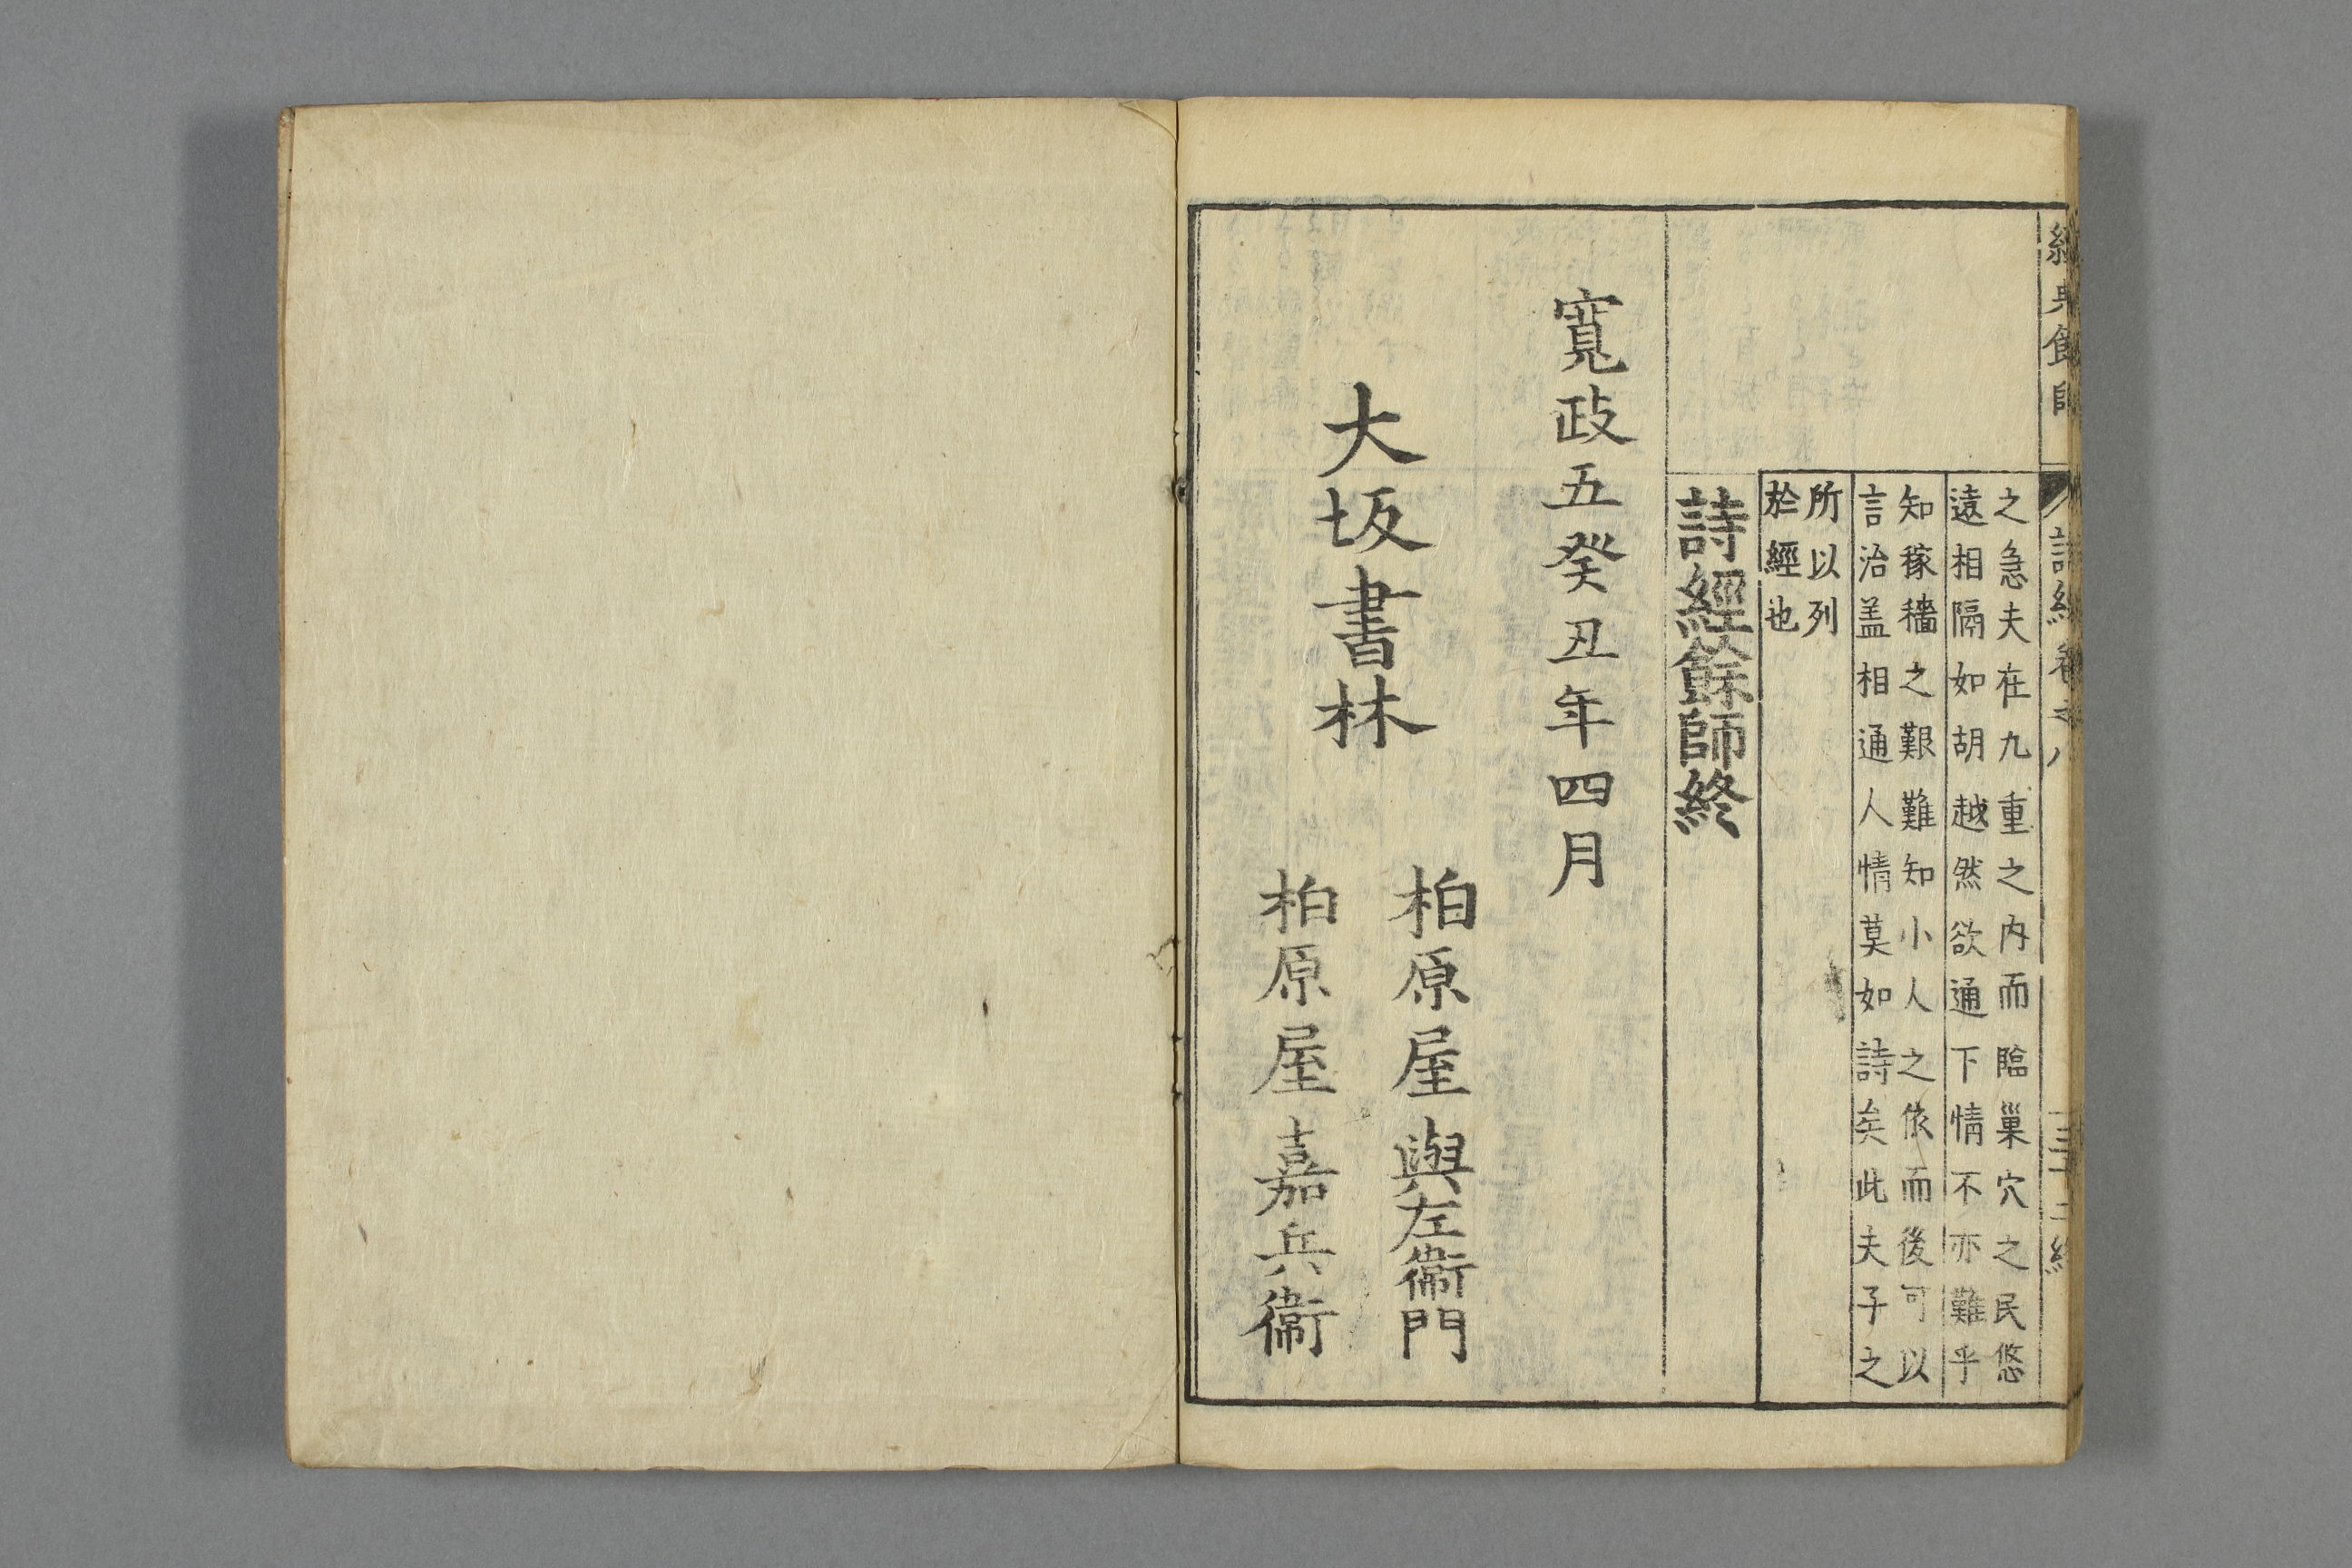 經典餘師
詩經卷之八
三十二終
之急夫在九重之内而臨巢穴之民悠
遠相隔如胡越然欲通下情不亦難乎
知稼穡之艱難知小人之依而後可以
言治盖相通人情莫如詩矣此夫子之
所以列
於經也
詩經餘師終
寛政五癸丑年四月
大坂書林
柏原屋與左衞門
柏原屋嘉兵衞